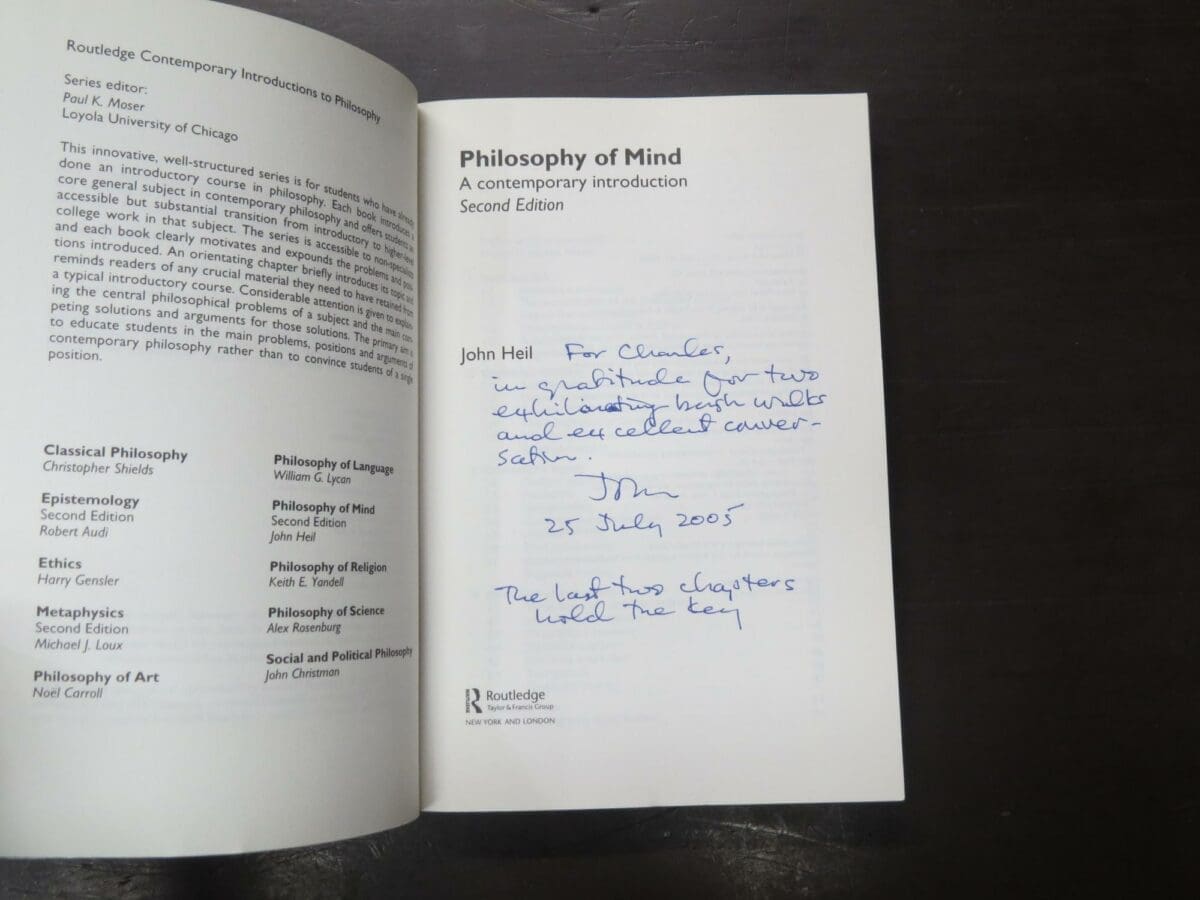 Routledge Contemporary Introductions to Philosophy
Series editor:
Paul K. Moser
Loyola University of Chicago
This innovative, well-structured series is for students who have already
done an introductory course in philosophy. Each book introduces a
core general subject in contemporary philosophy and offers students an
accessible but substantial transition from introductory to higher-level
college work in that subject. The series is accessible to non-specialists
and each book clearly motivates and expounds the problems and posi-
tions introduced. An orientating chapter briefly introduces its topic and
reminds readers of any crucial material they need to have retained from
a typical introductory course. Considerable attention is given to explain-
ing the central philosophical problems of a subject and the main com-
peting solutions and arguments for those solutions. The primary aim is
to educate students in the main problems, positions and arguments of
contemporary philosophy rather than to convince students of a single
position.
Classical Philosophy
Christopher Shields
Epistemology
Second Edition
Robert Audi
Ethics
Harry Gensler
Metaphysics
Second Edition
Michael J. Loux
Philosophy of Art
Noël Carroll
Philosophy of Language
William G. Lycan
Philosophy of Mind
Second Edition
John Heil
Philosophy of Religion
Keith E. Yandell
Philosophy of Science
Alex Rosenburg
Social and Political Philosophy
John Christman
Philosophy of Mind
A contemporary introduction
Second Edition
John Heil For Charles,
in gratitude for two
exhilarating bush walks
and excellent conver-
sation.
John
25 July 2005
The last two chapters
hold the key
R Routledge
Taylor & Francis Group
NEW YORK AND LONDON